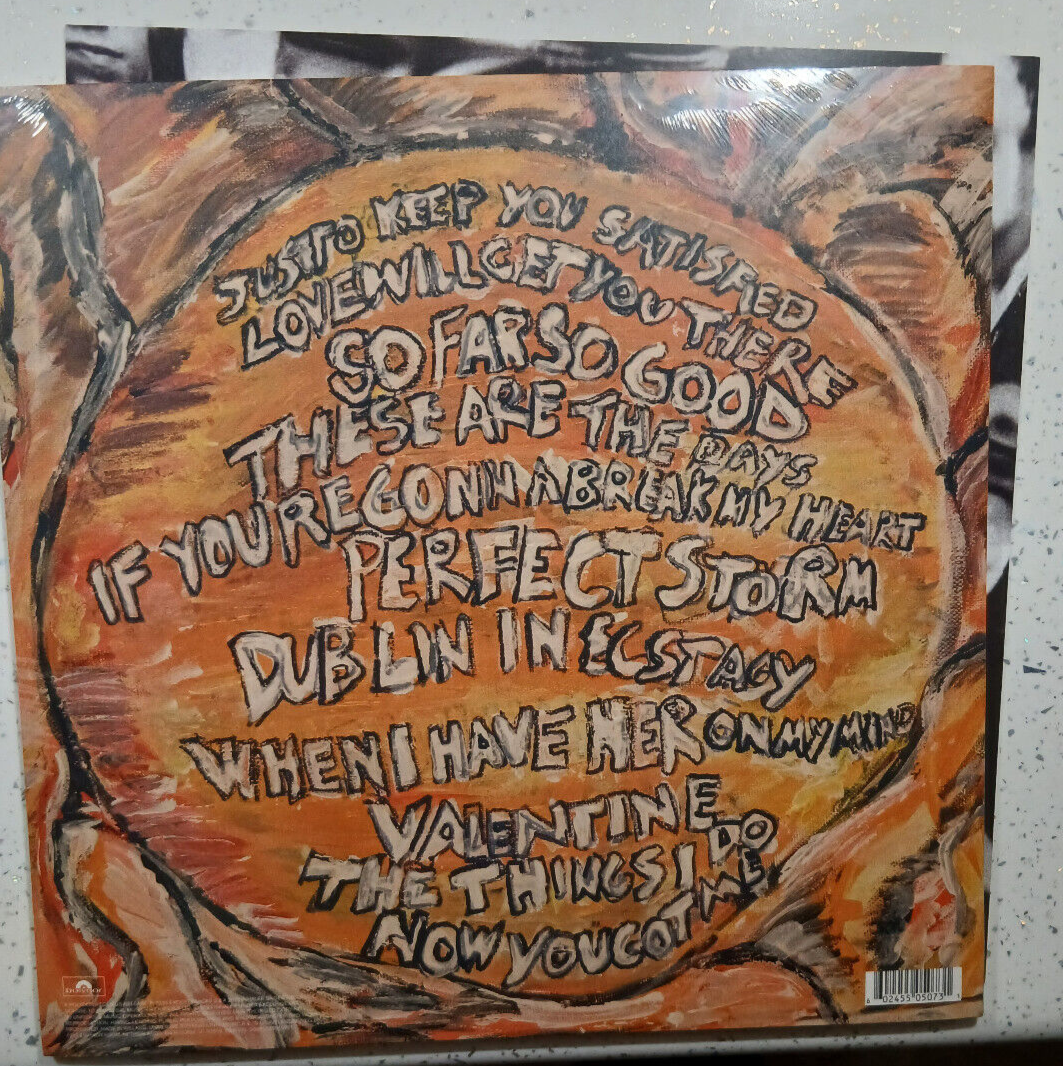 JUST TO KEEP YOU SATISFIED
LOVE WILL GET YOU THERE
SO FAR SO GOOD
THESE ARE THE DAYS
IF YOU'RE GONNA BREAK MY HEART
PERFECT STORM
DUBLIN IN ECSTACY
WHEN I HAVE HER ON MY MIND
VALENTINE
THE THINGS I DO
NOW YOU GOT ME
6 02455 05073 1